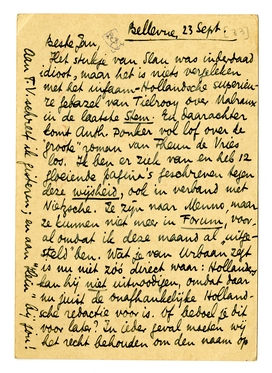 Bellevue, 23 Sept.
Beste Jan,
Het stukje van Slau was inderdaad
idioot, maar het is niets vergeleken
met het infaam-Hollandsche superieu-
re gebazel van Tielrooy over Malraux
in de laatste Stem. En daarachter
komt Anth. Donker vol lof over de
"groote" roman van Theun de Vries
los. Ik ben er ziek van en heb 12
gloeiende pagina's geschreven tegen
deze wijsheid, ook in verband met
Nietzsche. Ze zijn naar Menno, maar
ze kunnen niet meer in Forum, voor-
al omdat ik deze maand al "uitge-
steld" ben. Wat je van Urbaan zegt
is nu niet zóó direct waar: Hollanders
kan hij niet uitnoodigen, omdat daar
nu juist de onafhankelijke Holland-
sche redactie voor is. Of bedoel je dit
voor later? In ieder geval moeten wij
het recht behouden om den naam op
Aan F.V. schreef ik gisteren; en aan Hein
bij jou!